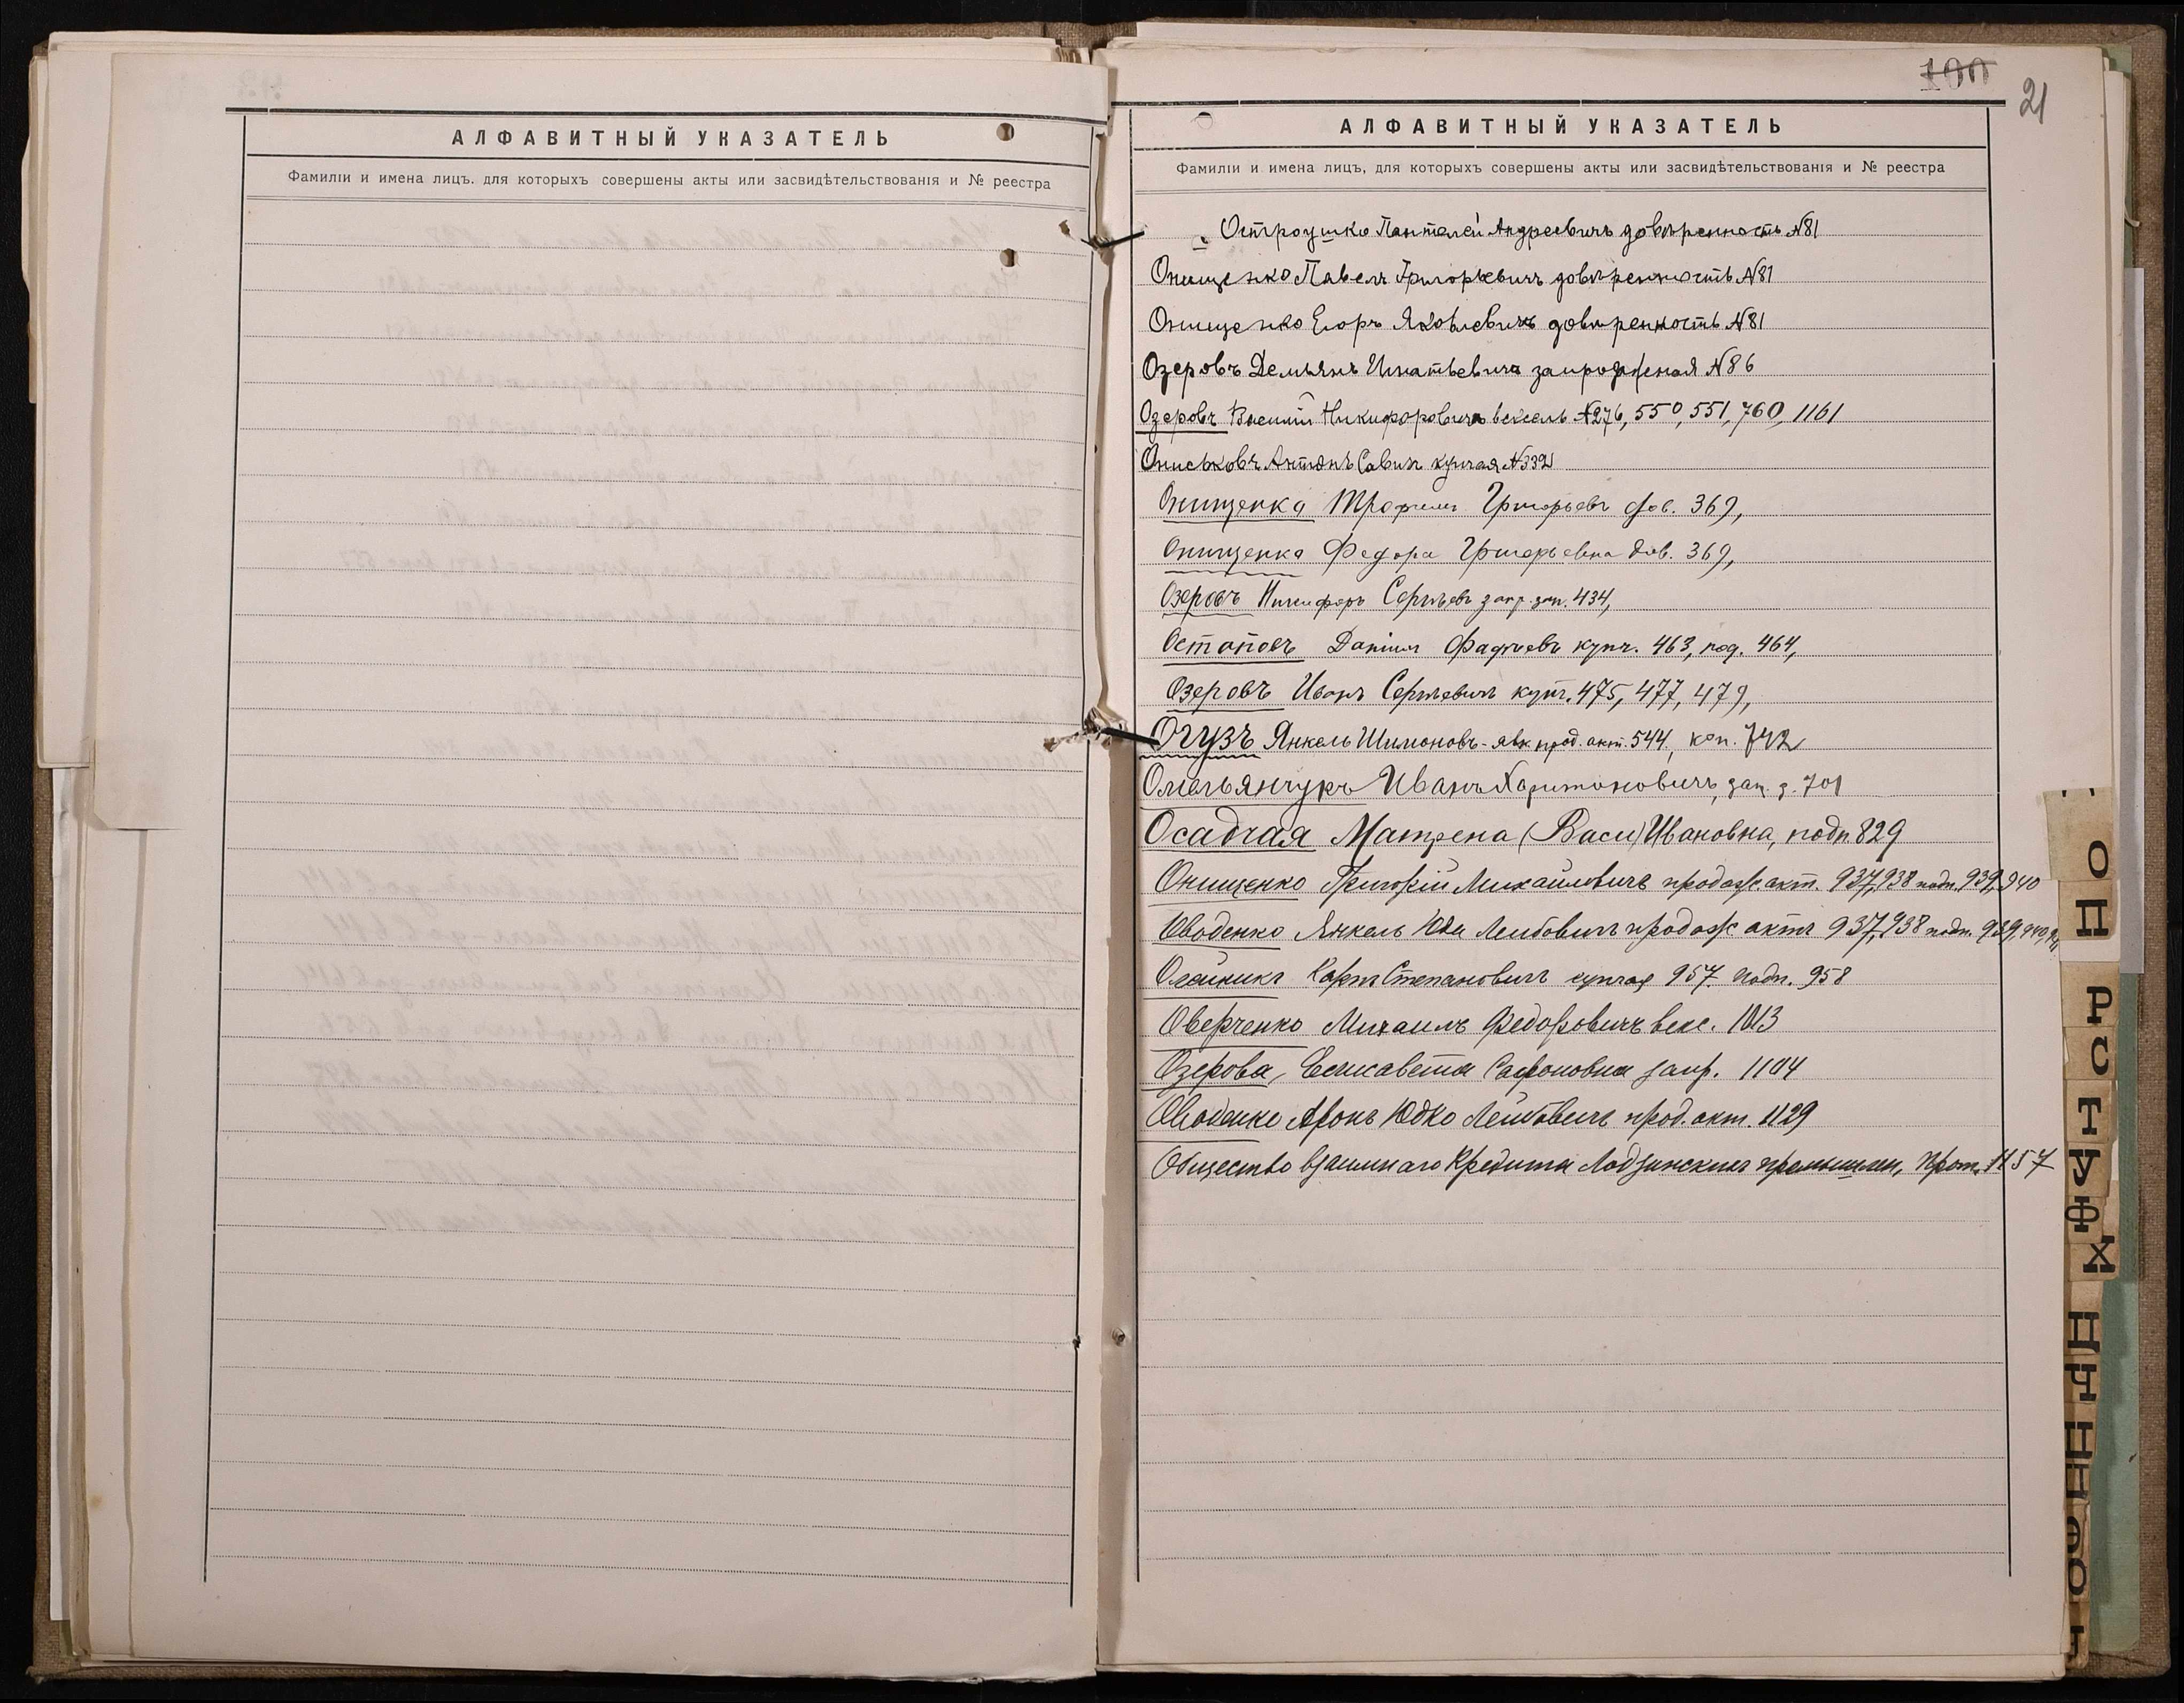 АЛФАВИТНЫЙ УКАЗАТЕЛЬ
Фамиліи и имена лицъ, для которыхъ совершены акты или засвидѣтельствованія и № реестра
100
21
АЛФАВИТНЫЙ УКАЗАТЕЛЬ
Фамиліи и имена лицъ, для которыхъ совершены акты или засвидѣтельствованія и № реестра
Остроушко Пантелей Андреевичъ довѣренность №81
Онищенко Павелъ Григорьевичъ довѣренность №81
Онищенко Егоръ Яковлевичъ довѣренность №81
Озеровъ Демьянъ Игнатьевичъ запродажная №86
Озеровъ Василій Никифоровичъ вексель №276, 550, 551, 760, 1161
Ониськовъ Антонъ Савич купчая №332
Онищенко Трофимъ Григорьевъ дов. 369,
Онищенко Федора Григорьевна дов. 369,
Озеровъ Никифоръ Сергѣевъ запр. зап. 434,
Остаповъ Даніилъ Фадѣевъ купч. 463, под. 464,
Озеровъ Иванъ Сергѣевичъ купч. 475, 477, 479,
Огузъ Янкель Шимоновъ - явк. прод. акт. 544, коп. 742
Омельянчукъ Иванъ Харитоновичъ, зап. з. 701
Осадчая Матрена (Васи) Ивановна, подп. 829
Онищенко Григорій Михайловичъ продаж акт. 937, 938 подп. 939, 940
Оводенко Янкель Юда Лейбовичъ продаж актъ 937, 938 подп. 939, 940,
Олейникъ Карпъ Степановичъ купчая 957. подп. 958
Оверченко Михаилъ Федоровичъ векс. 1013
Озерова, Елисавета Сафоновна запр. 1104
Оводенко Аронъ Юдко Лейбовичъ прод. акт. 1129
Общество взаимнаго Кредита Лодзинскихъ промышлен, прот. 1157
О
П
Р
С
Т
У
Ф
Х